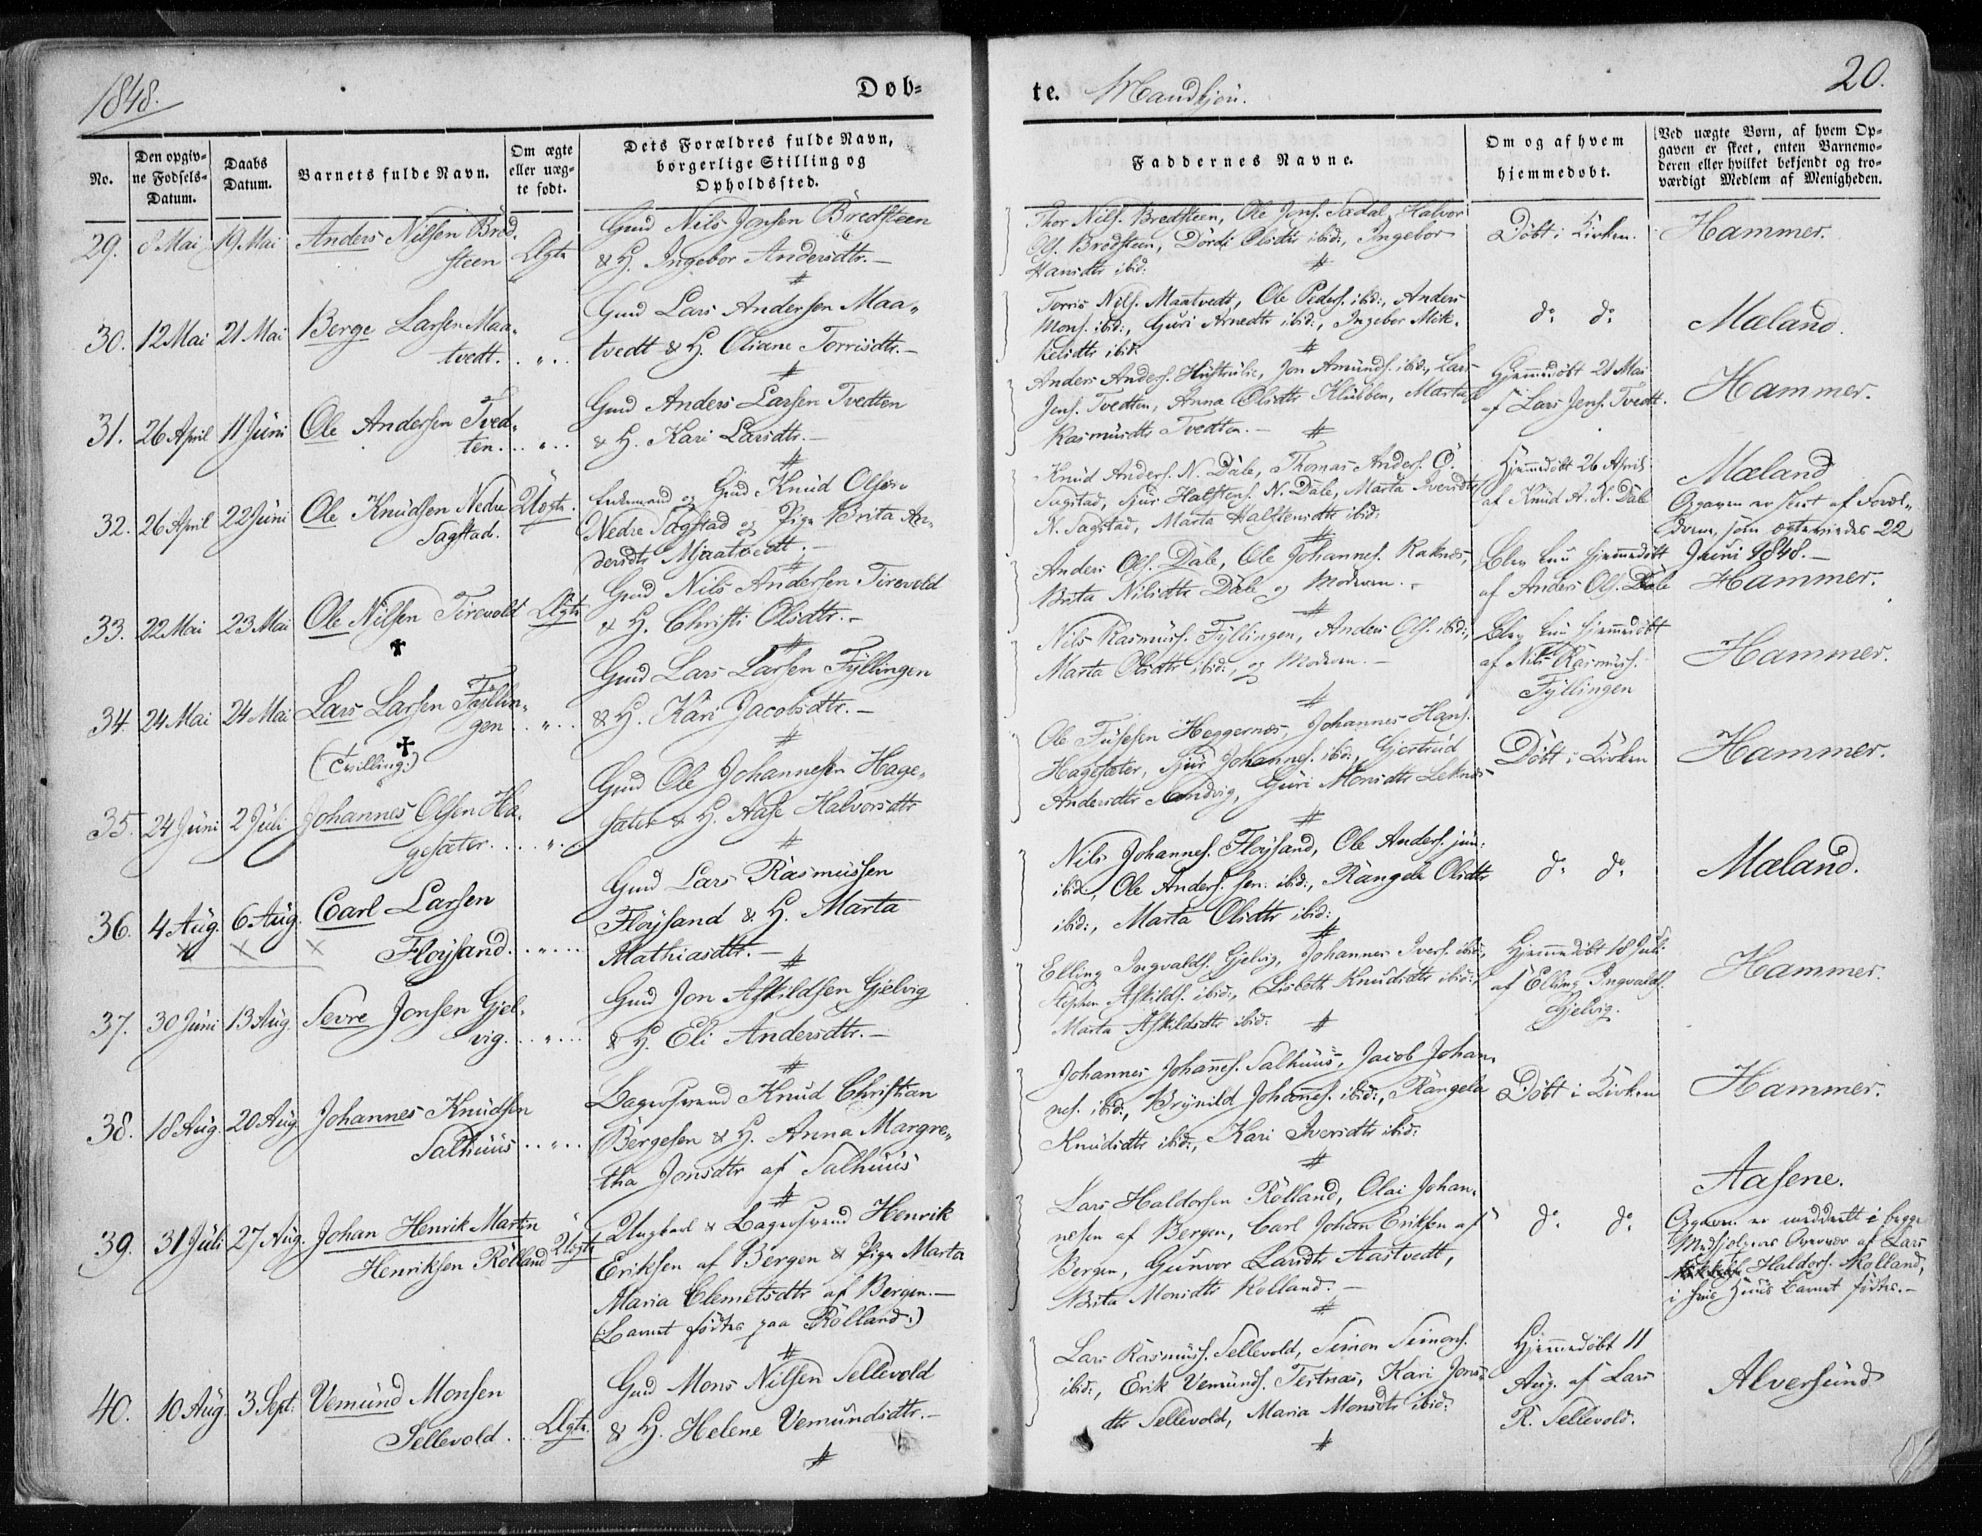 1848.
Døb-
te. Mandkjøn.
20.
No.
Den opgiv-
ne Fødsels-
Datum.
Daabs
Datum.
Barnets fulde Navn.
Om ægte
eller uæg-
te født.
Dets Forældres fulde Navn,
borgerlige Stilling og
Opholdssted.
Faddernes Navne.
Om og af hvem
hjemmedøbt.
Ved uægte Børn, af hvem Op-
gaven er skeet, enten Barnemo-
deren eller hvilket bekjendt og tro-
værdigt Medlem af Menigheden.
29. 8 Mai 19 Mai Anders Nilsen Bred-
steen Ægte
Gmd Nils Jonsen Bredsteen
& H. Ingebor Andersdtr. —
Thor Nils. Bredsteen, Ole Jens. Sadal, Halvor
Ols. Bredsteen, Dørdi Olsdtr ibid:, Ingebor
Hansdtr ibid:
Døbt i Kirken.
Hammer.
30. 12 Mai 21 Mai Berge Larsen Maa-
tvedt. . " . .
Gmd Lars Andersen Maa-
tvedt & H. Oliane Torrisdtr. —
Torris Nils. Maatvedt, Ole Peders. ibid:, Anders
Mons. ibid:, Guri Arnedtr ibid:, Ingebor Mik-
kelsdtr ibid:
do do
Mæland.
31. 26 April 11 Juni Ole Andersen Tved-
ten. . . " . .
Gmd Anders Larsen Tvedten
& H. Kari Larsdtr. —
Anders Anders. Hustrulie, Jon Amunds. ibid:, Lars
Jens. Tvedten, Anna Olsdtr Klubben, Marta
Rasmusdtr Tvedten. —
Hjemmedøbt 21 Mai
af Lars Jens. Tvedt.
Hammer.
32. 26 April 22 Juni Ole Knudsen Nedre
Sagstad. Uægte.
Enkemand og Gmd Knud Olsen
Nedre Sagstad og Pige Brita An-
dersdtr Maatvedt. —
Knud Anders. N. Dale, Thomas Anders. Ö.
Sagstad, Sjur Halstens. N. Dale, Marta Iversdtr
N. Sagstad, Marta Halstensdtr ibid:
Hjemmedøbt 26 April
af Knud A. N. Dale
Mæland
Opgaven er skeet af Foræl-
drene, som ægteviedes 22
Juni 1848. —
33. 22 Mai 23 Mai Ole Nilsen Tirevold Ægte
Gmd Nils Andersen Tirevold
& H. Christi Olsdtr. —
Anders Ols. Dale, Ole Johannes. Raknes,
Brita Nilsdtr Dale og Moderen. —
Blev kun hjemmedøbt
af Anders Ols. Dale
Hammer.
34. 24 Mai 24 Mai Lars Larsen Fyllin-
gen . . " . .
(Tvilling.)
Gmd Lars Larsen Fyllingen
& H. Kari Jacobsdtr. —
Nils Rasmuss. Fyllingen, Anders Ols. ibid:,
Marta Olsdtr ibid:, og Moderen. —
Blev kun hjemmedøbt
af Nils Rasmuss.
Fyllingen
Hammer.
35. 24 Juni 2 Juli Johannes Olsen Ha-
gesæter. . . . " .
Gmd Ole Johannesen Hage-
sæter & H. Aase Halvorsdtr
Ole Fusesen Heggernes, Johannes Hans.
Hagesæter, Sjur Johannes. ibid:, Gjertrud
Andersdtr Sandvig, Guri Monsdtr Leknes
Døbt i Kirken
Hammer.
36. 4 Aug. 6 Aug. Carl Larsen
Fløysand. . . " . . .
Gmd Lars Rasmussen
Fløysand & H. Marta
Mathiasdtr. —
Nils Johannes. Fløysand, Ole Anders. jun:
ibid:, Ole Anders. sen. ibid:, Rangele Olsdtr
ibid:, Marta Olsdtr ibid:
do do
Mæland.
37. 30 Juni 13 Aug. Sevre Jonsen Gjel-
vig. . . " . . .
Gmd Jon Askildsen Gjelvig
& H. Eli Andersdtr. —
Elling Ingvalds. Gjelvig, Johannes Ivers. ibid:,
Stephen Askilds. ibid:, Lisbeth Knudsdtr ibid:,
Marta Askildsdtr ibid:
Hjemmedøbt 18 Juli
af Elling Ingvalds.
Gjelvig.
Hammer.
38. 18 Aug. 20 Aug. Johannes Knudsen
Salhuus . . " . . .
Bagersvend Knud Christian
Børgesen & H. Anna Margre-
tha Jonsdtr af Salhuus
Johannes Johanes. Salhuus, Jacob Johan-
nes. ibid:, Brynild Johanes. ibid:, Rangela
Knudsdtr ibid:, Kari Iversdtr ibid:
Døbt i Kirken
Hammer.
39. 31 Juli 27 Aug. Johan Henrik Martin
Henriksen Rølland Uægte
Ungkarl & Bagersvend Henrik
Eriksen af Bergen & Pige Marta
Maria Clemetsdtr af Bergen. —
(Barnet fødtes paa Rølland.)
Lars Haldorsen Rølland, Olai Johan-
nesen af Bergen, Carl Johan Eriksen af
Bergen, Gunvor Larsdtr Aastvedt,
Brita Monsdtr Rolland. —
do do
Aasene.
Opgaven er meddeelt i begge
Medhjælpernes Overvær af Lars
Haldors. Rolland,
i hvis Huus Barnet fødtes. —
40. 10 Aug. 3 Sept. Vemund Monsen
Sellevold . Ægte.
Gmd Mons Nilsen Sellevold
& H. Helene Vemundsdtr. —
Lars Rasmuss. Sellevold, Simon Simons.
ibid:, Erik Vemunds. Festnæs, Kari Jons-
dtr Sellevold, Maria Monsdtr ibid:
Hjemmedøbt 11
Aug. af Lars
R. Sellevold.
Alversund